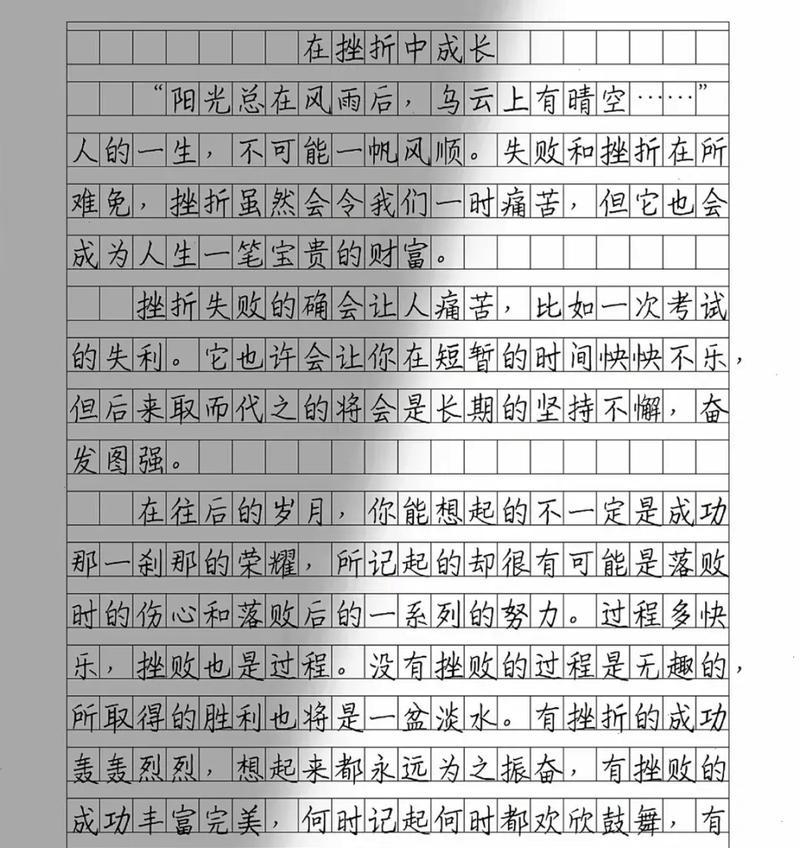 在挫折中成长
“阳光总在风雨后，乌云上有晴空……”
人的一生，不可能一帆风顺。失败和挫折在所
难免，挫折虽然会令我们一时痛苦，但它也会
成为人生一笔宝贵的财富。
挫折失败的确会让人痛苦，比如一次考试
的失利。它也许会让你在短暂的时间怏怏不乐，
但后来取而代之的将会是长期的坚持不懈，奋
发图强。
在往后的岁月，你能想起的不一定是成功
那一刹那的荣耀，所记起的却很有可能是落败
时的伤心和落败后的一系列的努力。过程多快
乐，挫败也是过程。没有挫败的过程是无趣的，
所取得的胜利也将是一盆淡水。有挫折的成功
轰轰烈烈，想起来都永远为之振奋，有挫败的
成功丰富完美，何时记起何时都欢欣鼓舞，有